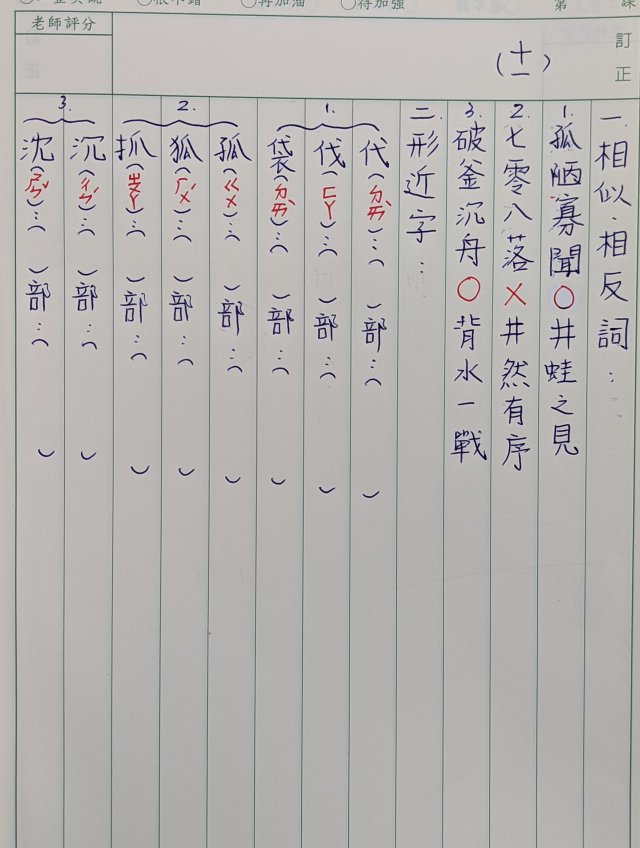 老師評分
訂正
(十一)
一.相似.相反詞：
1.孤陋寡聞○井蛙之見
2.七零八落×井然有序
3.破釜沉舟○背水一戰
二.形近字：
1.
代(ㄉㄞˋ)：( )部：( )
伐(ㄈㄚ)：( )部：( )
袋(ㄉㄞˋ)：( )部：( )
2.
孤(ㄍㄨ)：( )部：( )
狐(ㄏㄨˊ)：( )部：( )
抓(ㄓㄨㄚ)：( )部：( )
3.
沉(ㄔㄣˊ)：( )部：( )
沈(ㄕㄣˇ)：( )部：( )